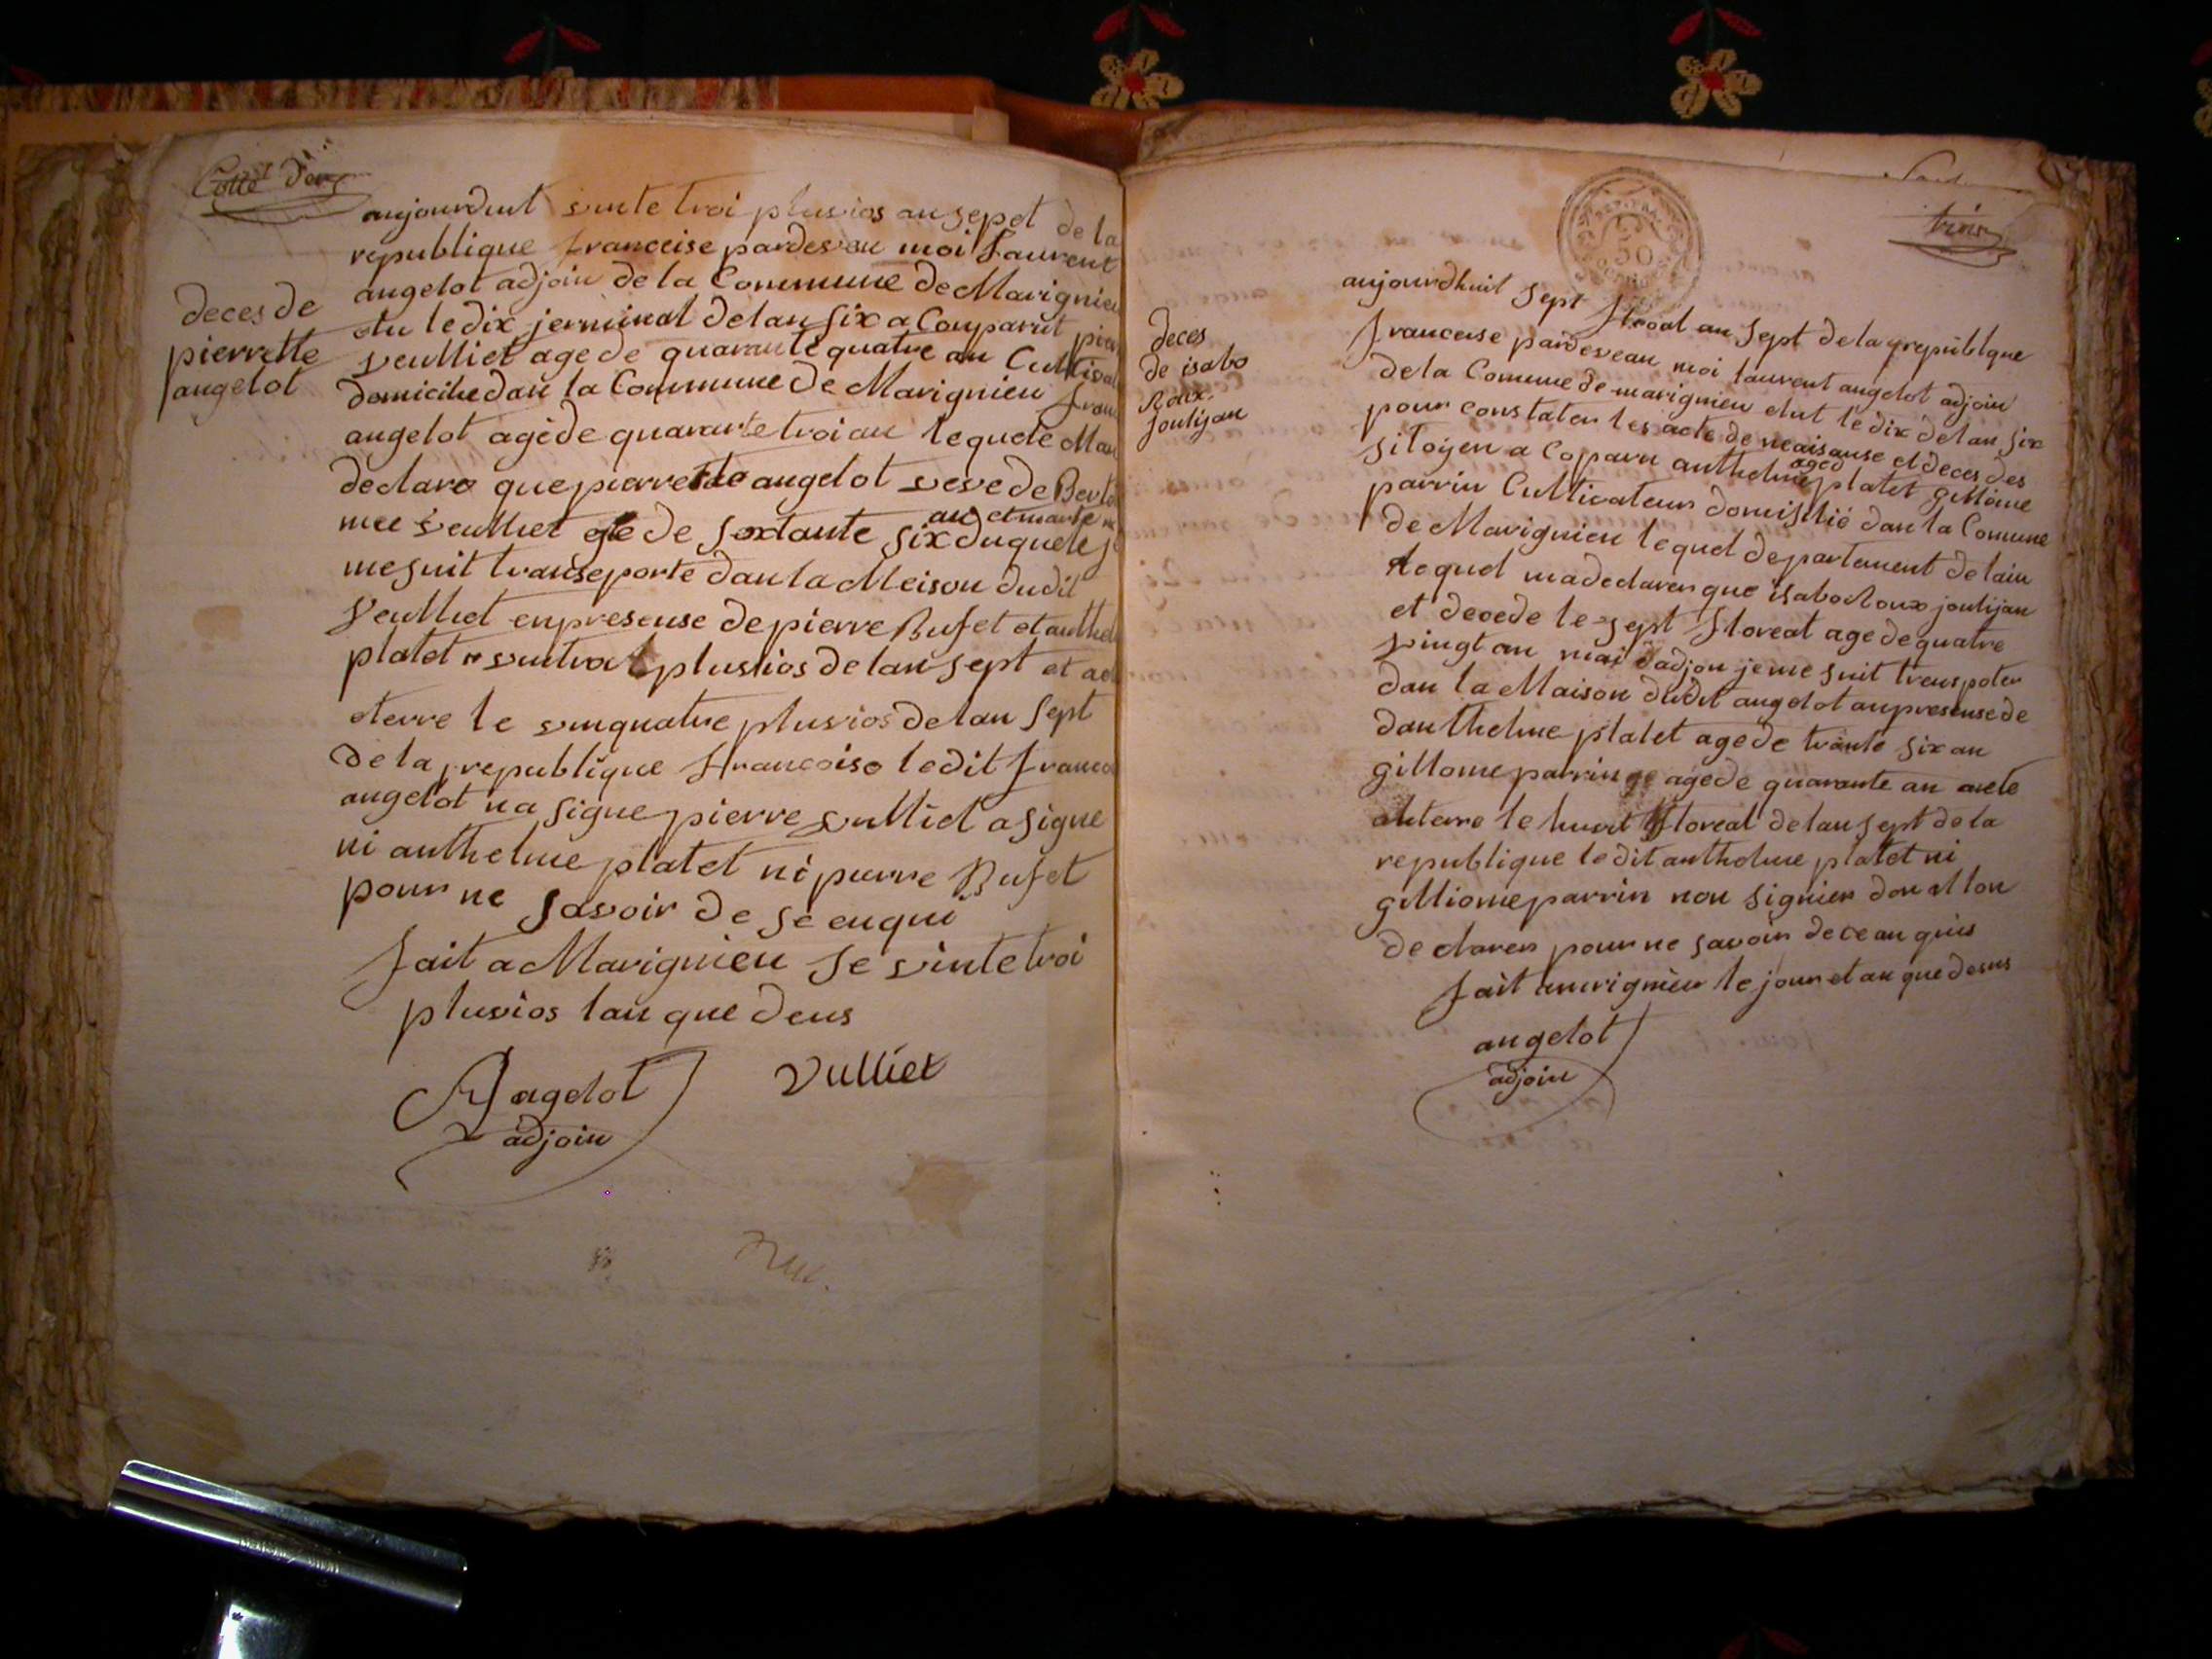 deces de
pierrette
angelot
aujourduit vinte troi pluvios an sepet de la
republique franceise pardeveau moi Laurent
angelot adjoin de la Commune de Marignieu
elu le dix jerminal de lan six a Comparut pier
veulliet age de quarante quatre an Cultivat
domicilie dan la Commune de Marignieu fran
angelot agè de quarante troi an lequele Mon
declare que pierrette angelot veve de Berte
mee veulliet age de soxtante six duquele je
an et marte
me suit transeporte dan la Meison dudit
Veulliet en presense de pierre Bufet et anthel
platet vintroi pluvios de lan sept et
eterre le vinquatre pluvios de lan sept
de la republique francoise ledit franco
angelot na signe pierre vulliet a signe
ni anthelme platet ni pierre Bufet
pour ne savoir de se enqui
fait a Marignieu se vinte troi
pluvios lan que deus
agelot
adjoin
Vulliet
deces
de isabo
Roux
joulijan
50
aujourdhuit sept floral an sept de la republque
franceise pardeveau moi laurent angelot adjoin
de la Comune de marignieu elut le dix de lan six
pour constater les acte de neaisanse et deces des
sitoyen a Coparu anthelme platet gillome
aged
parrin Cultivateur domisilié dan la Comune
de Marignieu lequel departement de lain
lequel ma declarer que isabo Roux joulijan
et decede le sept floreal age de quatre
vingt an moi dadjou je me suit trenspoter
dan la Maison dudit angelot an presense de
danthelme platet age de trante six an
gillome parrin agè de quarante an aete
anterre le huit floreal de lan sept de la
republique le dit anthelme platet ni
gilliome parrin non signier don et lon
declarer pour ne savoir de ce an quis
fait amrignieu le jour et an que desus
angelot
adjoin